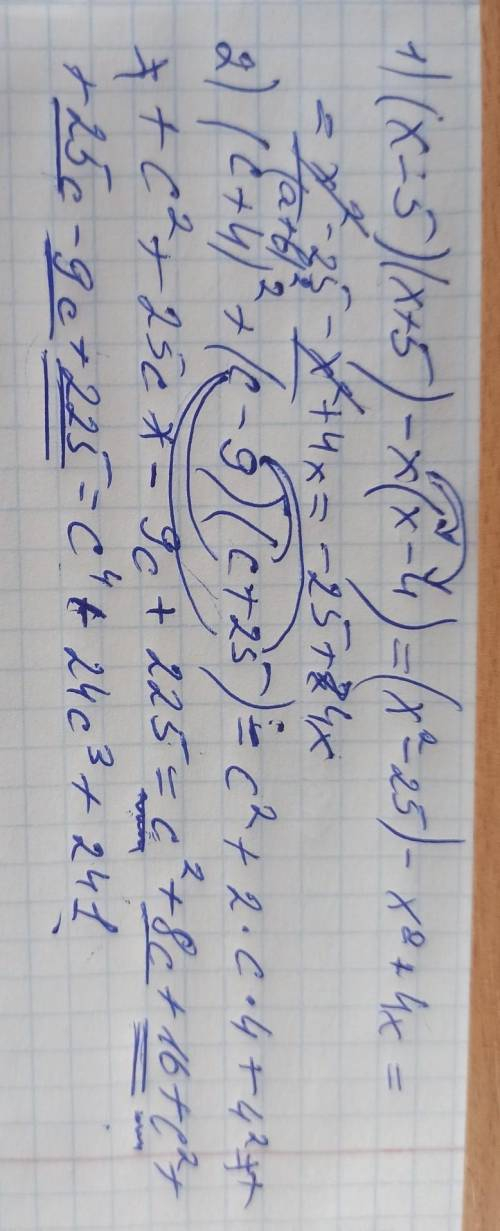 1) (x-5)(x+5)-x(x-4)=(x²-25)-x²+4x=
=x²-25-x²+4x=-25+4x
(a+b)²
2) (c+4)²+(c-9)(c+25)=c²+2·c·4+4²+
+c²+25c-9c+225=c²+8c+16+c²+
+25c-9c+225=c⁴+24c³+241